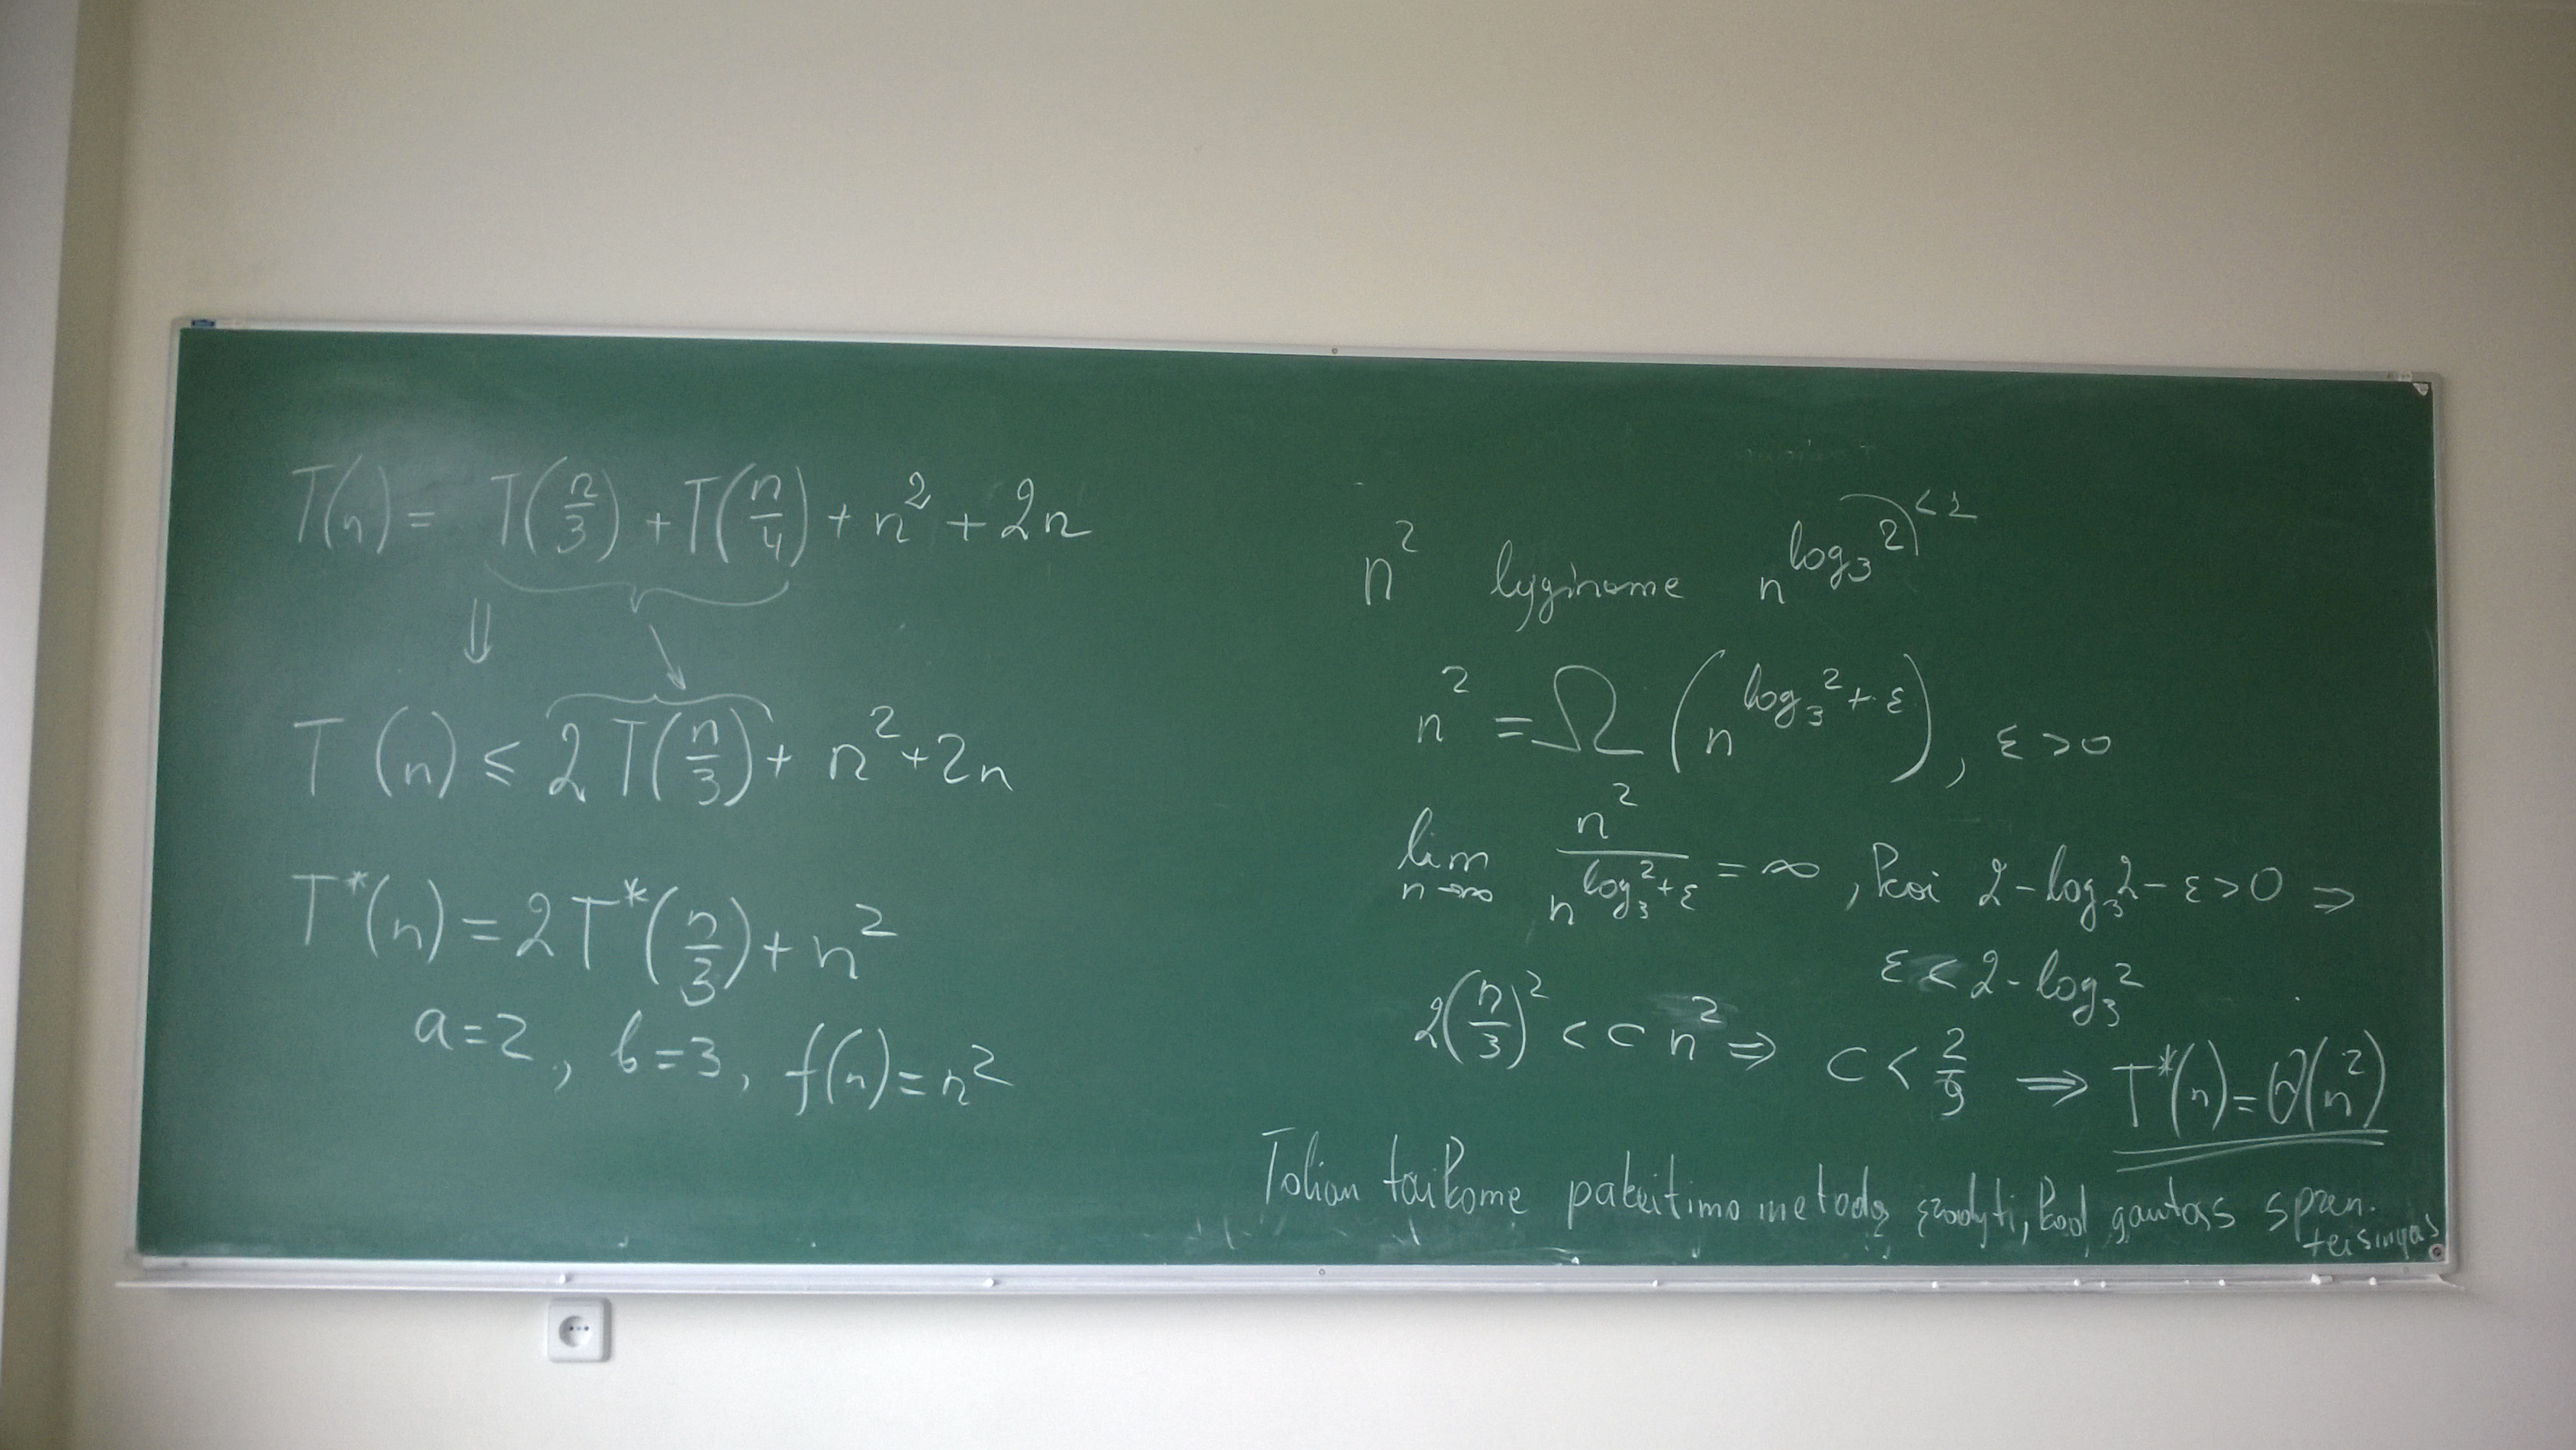 T(n) = T(n/3) + T(n/4) + n² + 2n
⇓
T(n) ≤ 2T(n/3) + n² + 2n
T*(n) = 2T*(n/3) + n²
a=2, b=3, f(n)=n²
n² lyginame n^(log₃2) <1
n² = Ω(n^(log₃2+ε)), ε>0
lim n→∞ n²/n^(log₃2+ε) = ∞, kai 2-log₃2-ε>0 ⇒
ε < 2-log₃2
2(n/3)² < c n² ⇒ c < 2/9 ⇒ T*(n)=Θ(n²)
Toliau taikome pakeitimo metodą įrodyti, kad gautas spren.
teisingas